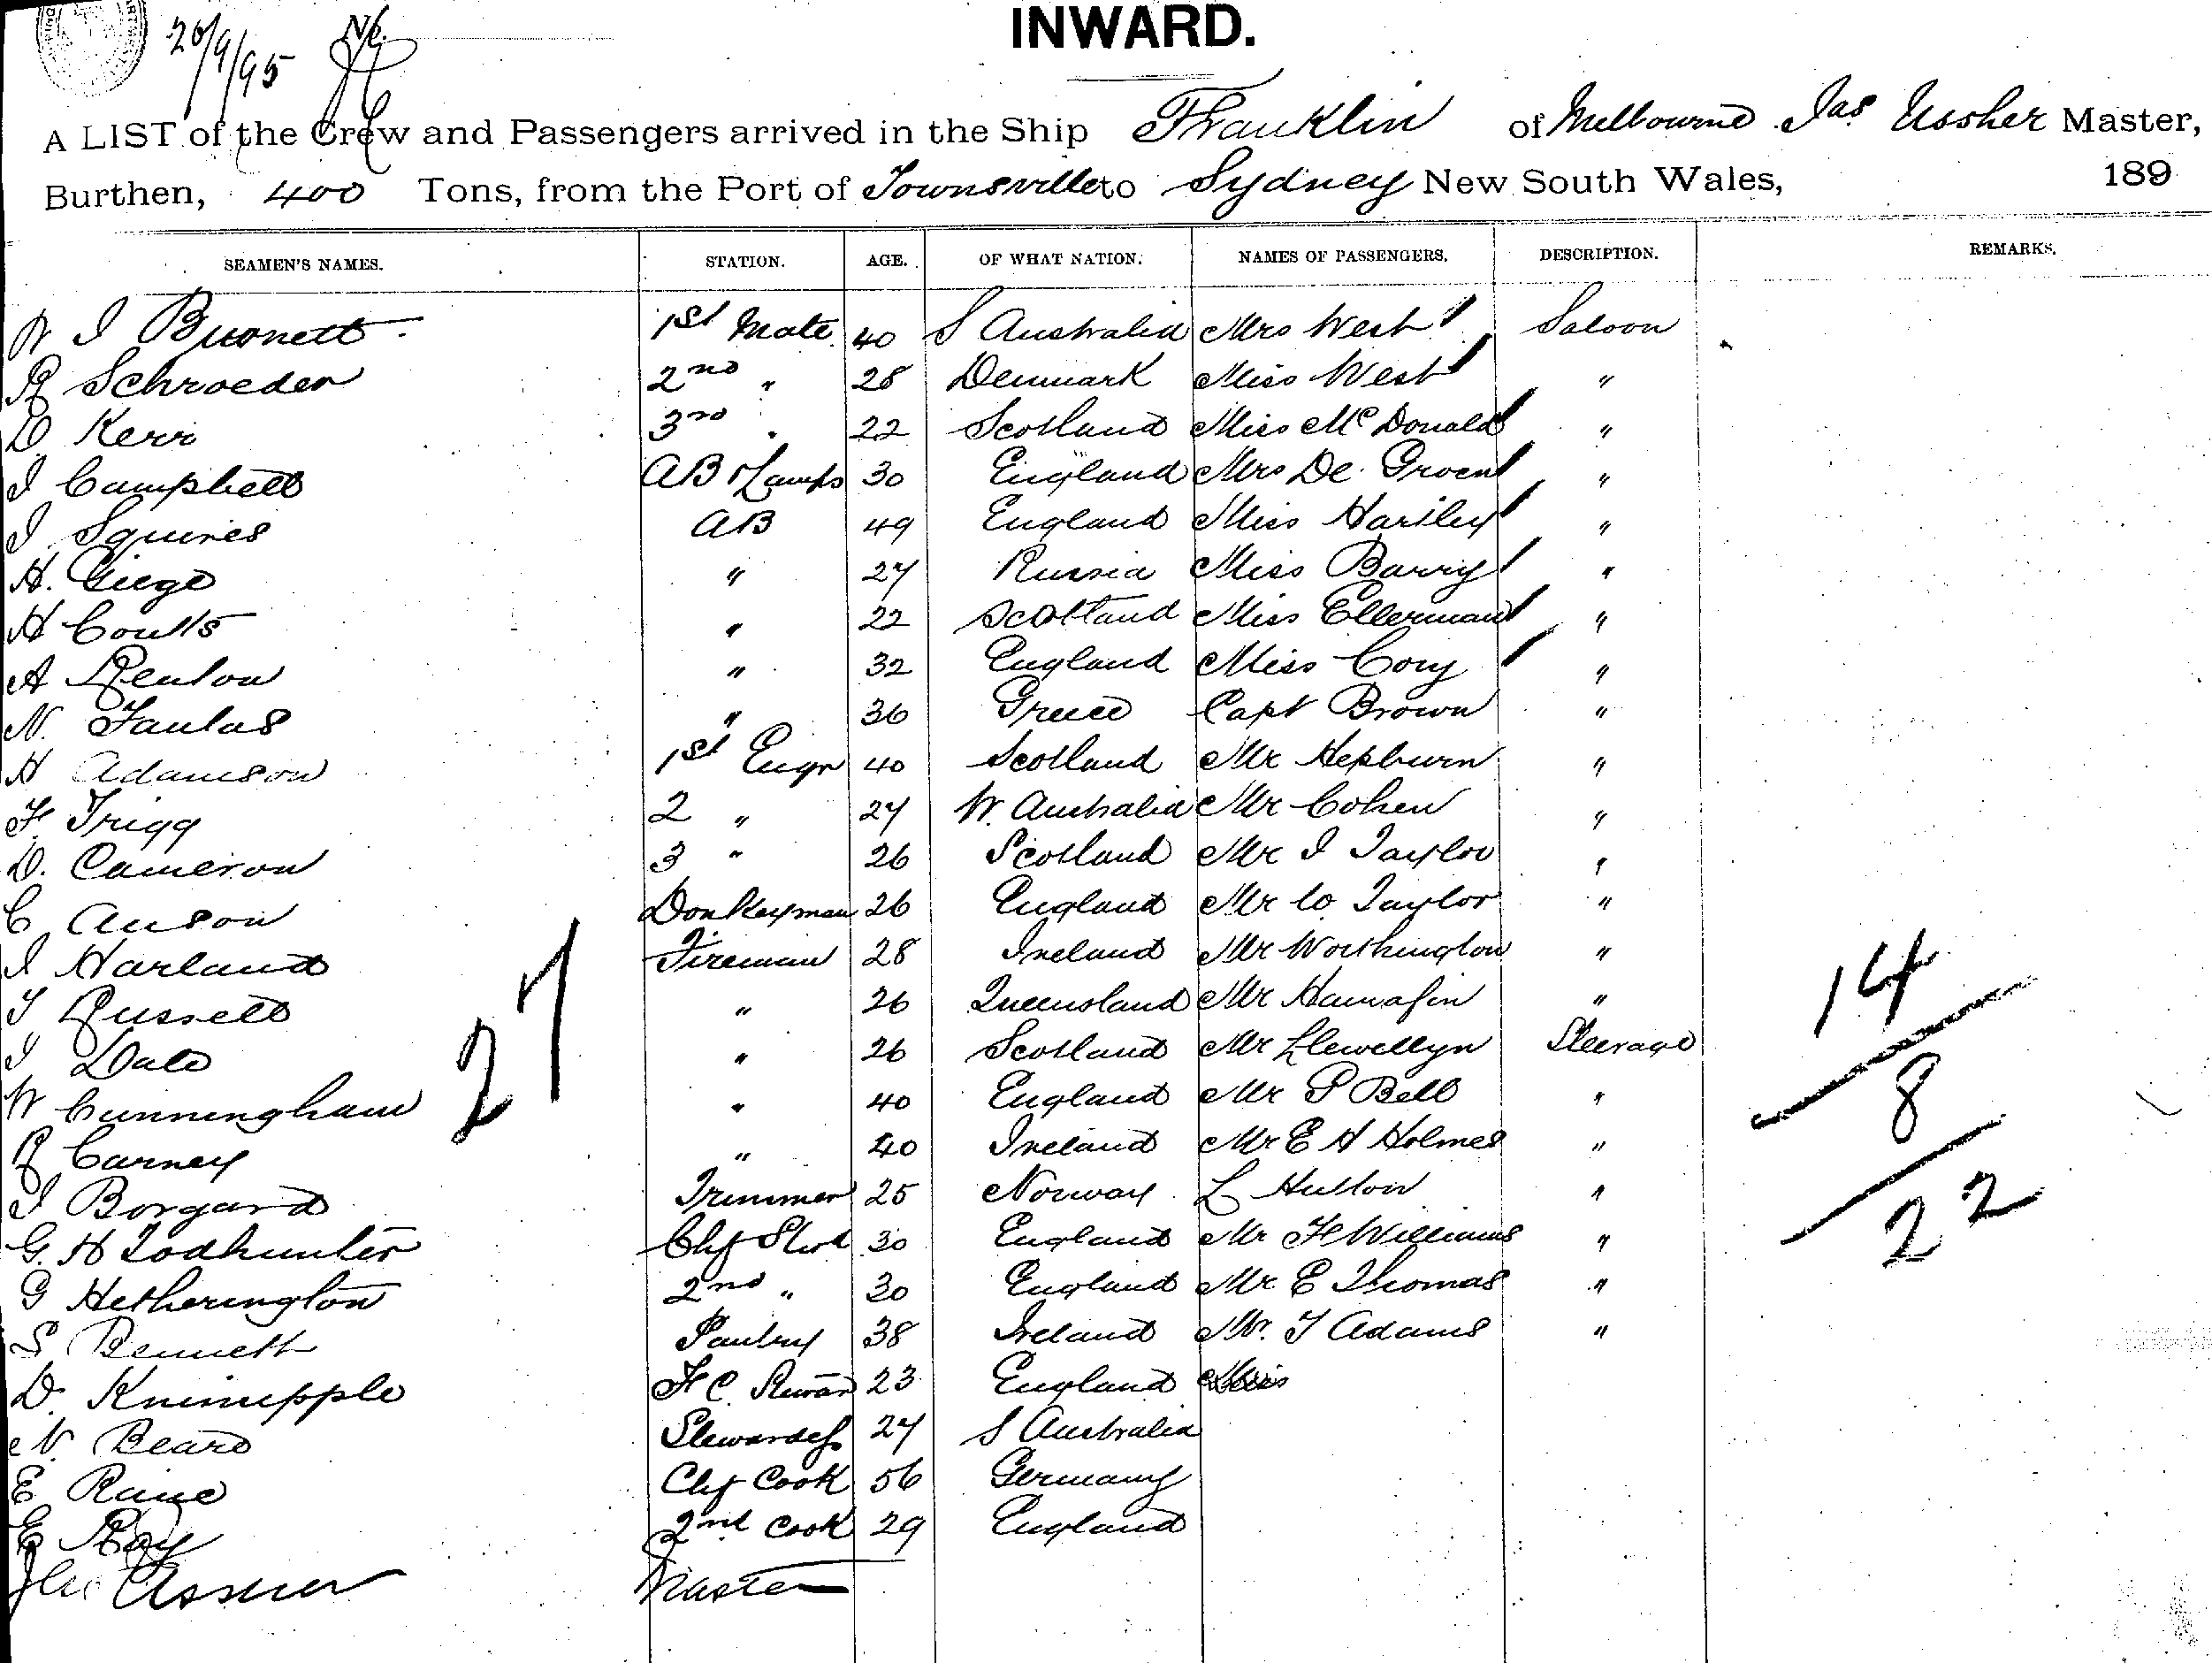 26/9/95
INWARD.
A LIST of the Crew and Passengers arrived in the Ship Franklin of Melbourne Jas Ussher Master,
Burthen, 400 Tons, from the Port of Townsville to Sydney New South Wales, 189
SEAMEN'S NAMES. STATION. AGE. OF WHAT NATION. NAMES OF PASSENGERS. DESCRIPTION. REMARKS.
W J Burnett 1st Mate 40 S Australia Mrs West Saloon
R Schroeder 2nd " 28 Denmark Miss West "
D. Kerr 3rd " 22 Scotland Miss McDonald "
J Campbell AB & Lamps 30 England Mrs De Groen "
J Squires AB 49 England Miss Hartley "
H. " 27 Russia Miss Barry "
H Coutts " 22 Scotland Miss Ellerman "
A Renton " 32 England Miss Cory "
N. " 36 Greece Capt Brown "
H Adamson 1st Engr 40 Scotland Mr Hepburn "
F. Trigg 2 " 27 W. Australia Mr Cohen "
D. Cameron 3 " 26 Scotland Mr J Taylor "
C Anson Donkeyman 26 England Mr Taylor "
J Harland Fireman 28 Ireland Mr Worthington "
T Russell " 26 Queensland Mr "
J Dale " 26 Scotland Mr Llewellyn Steerage
W Cunningham " 40 England Mr P Bell "
R Carney " 40 Ireland Mr E H Holmes "
J Borgard Trimmer 25 Norway L Hutton "
G. H Todhunter Chf Stwd 30 England Mr F Williams "
G Hetherington 2nd " 30 England Mr E Thomas "
S Bennett Pantry 38 Ireland Mr. T Adams "
D. F C Steward 23 England Miss
N. Beard Stewardess 27 S Australia
E Chf Cook 56 Germany
E Ray 2nd Cook 29 England
Jas Ussher Master
27
14
8
22